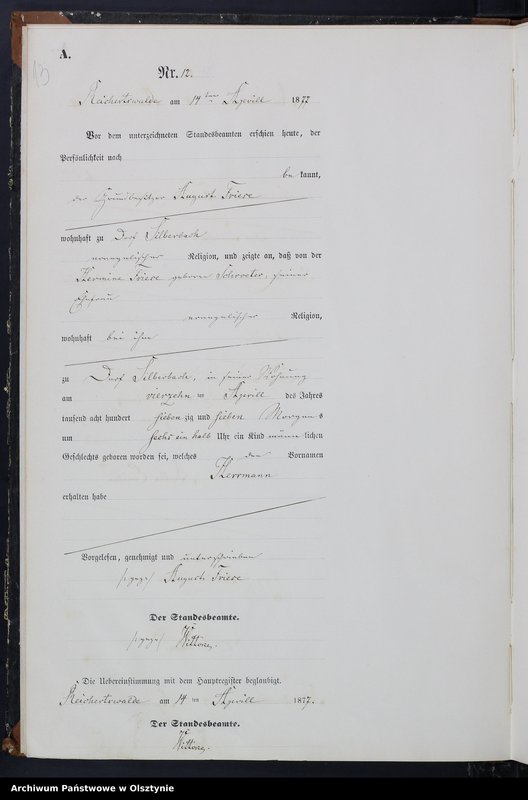 13
A.
Nr. 12.
Reichertswalde am 14ten April 1877
Vor dem unterzeichneten Standesbeamten erschien heute, der
Persönlichkeit nach
be kannt,
der Grundbesitzer August Friese
wohnhaft zu Dorf Silberbach
evangelischer Religion, und zeigte an, daß von der
Hermine Friese geboren Schroeter, seiner
Ehefrau
evangelischer Religion,
wohnhaft bei ihm
zu Dorf Silberbach, in seiner Wohnung
am vierzehn ten April des Jahres
tausend acht hundert sieben zig und sieben Morgen s
um sechs ein halb Uhr ein Kind männ lichen
Geschlechts geboren worden sei, welches den Vornamen
Herrmann
erhalten habe
Vorgelesen, genehmigt und unterschrieben
August Friese
Der Standesbeamte.
Die Uebereinstimmung mit dem Hauptregister beglaubigt.
Reichertswalde am 14 ten April 1877.
Der Standesbeamte.
Archiwum Państwowe w Olsztynie